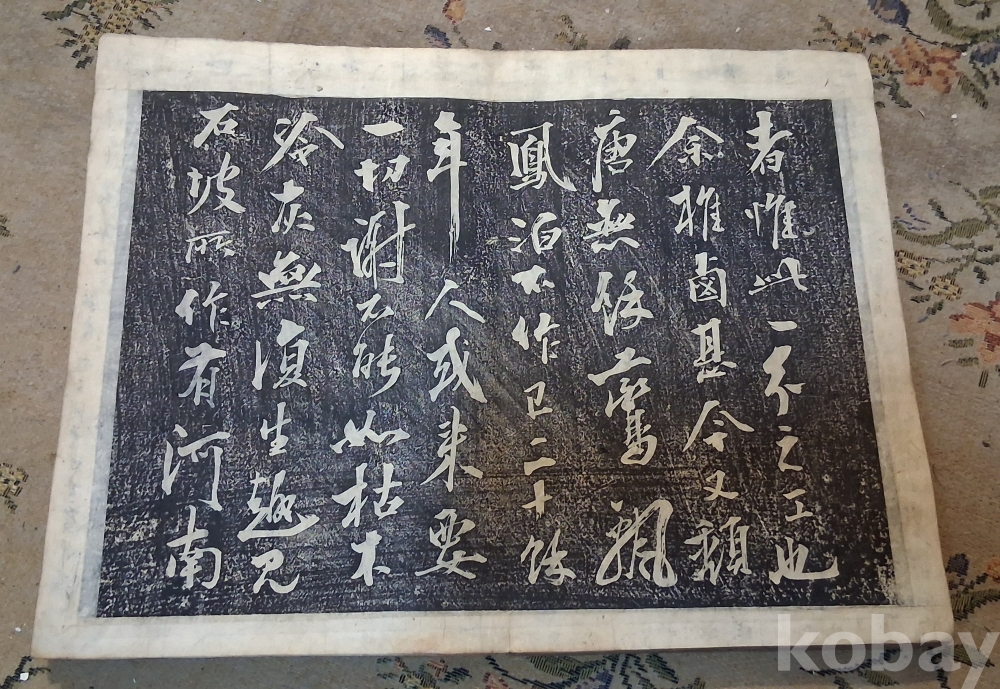 者惟此一介之工也
余椎鹵甚今又頹
唐無鸞飄
鳳泊不作已二十餘
年人或来要
一切謝不能如枯木
冷灰無復生趣見
石坡所作有河南
kobay